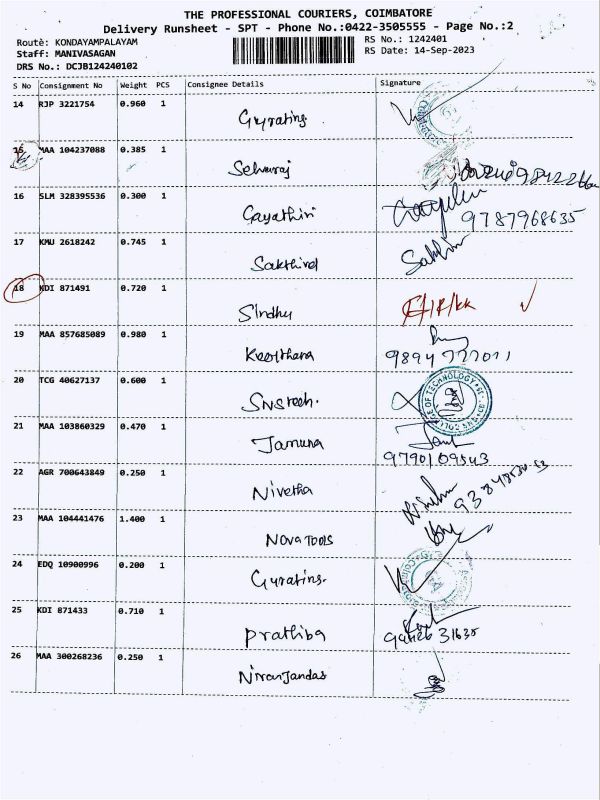 THE PROFESSIONAL COURIERS, COIMBATORE
Delivery Runsheet - SPT - Phone No.:0422-3505555 - Page No.:2
Route: KONDAYAMPALAYAM
RS No.: 1242401
Staff: MANIVASAGAN
RS Date: 14-Sep-2023
DRS No.: DCJB124240102
S No Consignment No Weight PCS Consignee Details Signature
14 RJP 3221754 0.960 1
15 MAA 104237088 0.385 1
Selvaraj
16 SLM 328395536 0.300 1
Gayathiri
9787968635
17 KMU 2618242 0.745 1
Sakthivel
18 KDI 871491 0.720 1
Sindhu
19 MAA 857685089 0.980 1
Keerthana
9894777011
20 TCG 40627137 0.600 1
SNS tech.
21 MAA 103860329 0.470 1
Jamuna
9790109543
22 AGR 700643849 0.250 1
Nivetha
23 MAA 104441476 1.400 1
NOVA TOOLS
24 EDQ 10900996 0.200 1
25 KDI 871433 0.710 1
Prathiba
26 MAA 300268236 0.250 1
Niranjandas